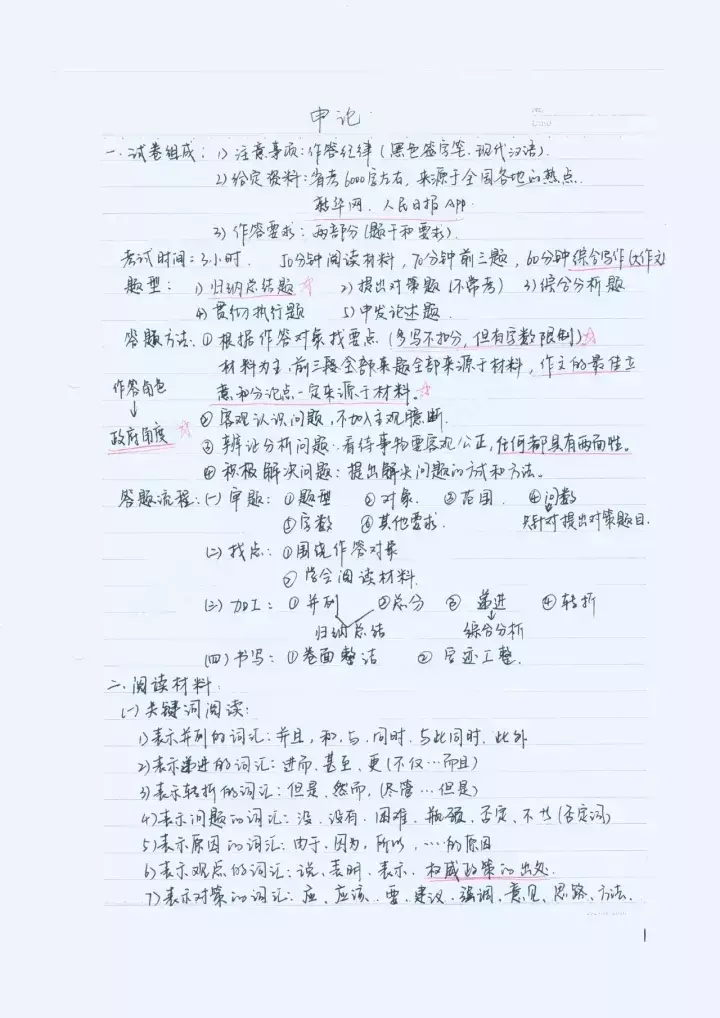 申论
一、试卷组成：1) 注意事项：作答纪律（黑色签字笔、现代汉语）.
2) 给定资料：省考6000字左右，来源于全国各地的热点.
新华网、人民日报App.
3) 作答要求：两部分（题干和要求）.
考试时间：3小时. 50分钟阅读材料，70分钟前三题，60分钟综合写作(大作文)
题型：1) 归纳总结题☆ 2) 提出对策题（不常考） 3) 综合分析题
4) 贯彻执行题 5) 申发论述题.
答题方法：① 根据作答对象找要点（多写不扣分，但有字数限制）☆
材料为主.前三题全部来题全部来源于材料，作文的最佳立
意和分论点一定来源于材料.☆
作答角色
↓
政府角度☆
② 客观认识问题，不加入主观臆断.
③ 辨证分析问题：看待事物要客观公正，任何都具有两面性。
④ 积极解决问题：提出解决问题的方式和方法。
答题流程：(一) 审题：①题型 ②对象. ③范围. ④问数
⑤字数 ⑥其他要求. 只针对提出对策题目.
(二) 找点：①围绕作答对象
② 学会阅读材料.
(三) 加工：①并列 ②总分 ③递进 ④转折
归纳总结 综合分析
(四) 书写：①卷面整洁 ② 字迹工整.
二、阅读材料：
(一) 关键词阅读：
1)表示并列的词汇：并且，和、与、同时、与此同时、此外
2)表示递进的词汇：进而、甚至、更(不仅…而且)
3)表示转折的词汇：但是、然而，(尽管…但是)
4)表示问题的词汇：没、没有、困难、瓶颈、否定、不(否定词)
5)表示原因的词汇：由于、因为，所以，…的原因
6)表示观点的词汇：说、表明、表示、权威政策的出处.
7)表示对策的词汇：应、应该、要、建议、强调、意见、思路、方法.
1